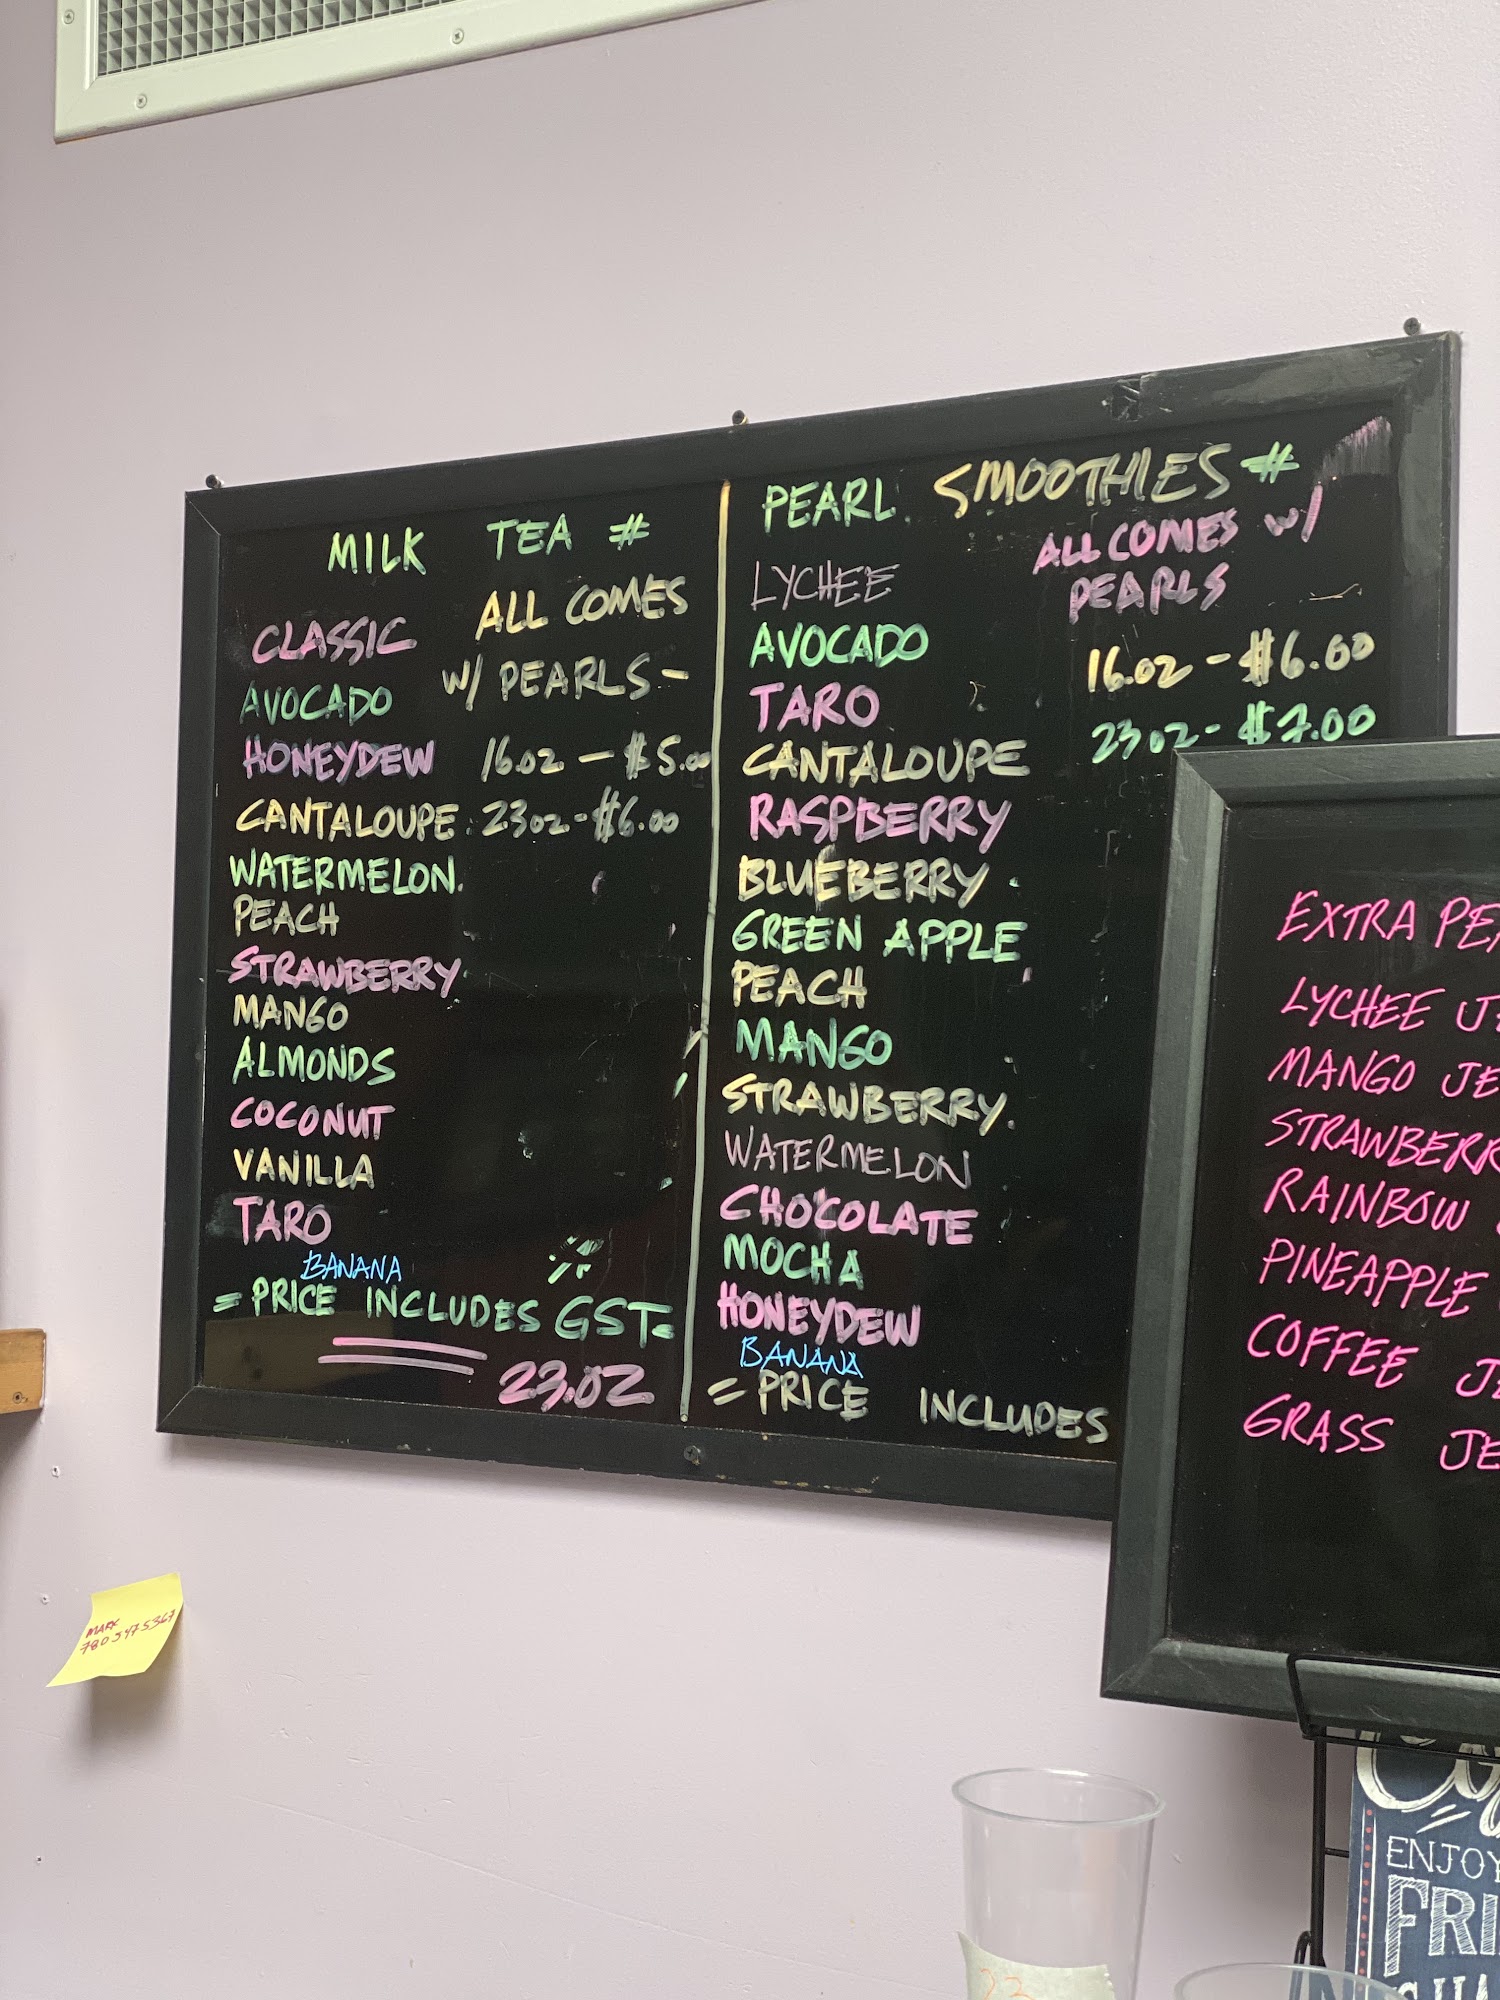 MILK TEA #
ALL COMES
W/ PEARLS -
16.oz — $5.00
23oz - $6.00
CLASSIC
AVOCADO
HONEYDEW
CANTALOUPE.
WATERMELON.
PEACH
STRAWBERRY.
MANGO
ALMONDS
COCONUT
VANILLA
TARO
BANANA
= PRICE INCLUDES GST=
23.OZ
PEARL. SMOOTHIES #
ALL COMES w/
PEARLS
16.oz - $6.00
23oz - $7.00
LYCHEE
AVOCADO
TARO
CANTALOUPE
RASPBERRY
BLUEBERRY.
GREEN APPLE
PEACH
MANGO
STRAWBERRY.
WATERMELON
CHOCOLATE
MOCHA
HONEYDEW
BANANA
= PRICE INCLUDES
EXTRA PEA
LYCHEE JE
MANGO JE
STRAWBERR
RAINBOW
PINEAPPLE
COFFEE JE
GRASS JE
MARK
780 5475367
23
ENJOY
FRI